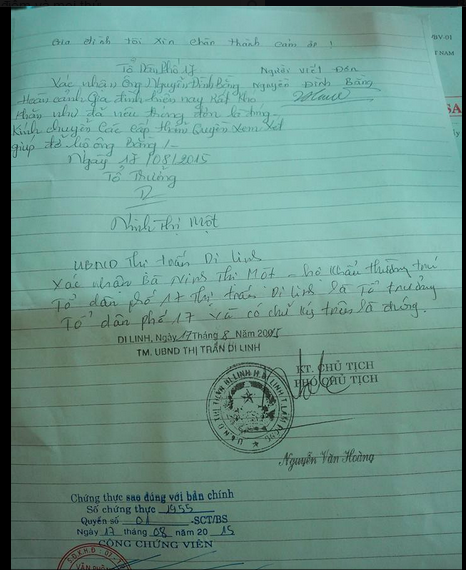 Gia đình tôi xin chân thành cảm ơn !
Tổ Dân Phố 17
Người viết Đơn
Xác nhận ông Nguyễn Đình Bằng
Nguyễn Đình Bằng
Hoàn cảnh Gia đình hiện nay Rất khó
khăn như đã nêu trong đơn là đúng.
Kính chuyển Các Cấp thẩm Quyền Xem Xét
giúp đỡ hộ ông Bằng /-
Ngày 17/08/2015
Tổ Trưởng
Ninh Thị Một
UBND Thị trấn Di Linh
Xác nhận Bà Ninh Thị Một - hộ khẩu thường trú
Tổ dân phố 17 Thị trấn Di Linh là Tổ trưởng
Tổ dân phố 17 và có chữ ký trên là đúng.
DI LINH, Ngày 17 Tháng 8 Năm 2015
TM. UBND THỊ TRẤN DI LINH
KT. CHỦ TỊCH
PHÓ CHỦ TỊCH
Nguyễn Văn Hoàng
Chứng thực sao đúng với bản chính
Số chứng thực 1955
Quyển số 01 -SCT/BS
Ngày 17 tháng 08 năm 20 15
CÔNG CHỨNG VIÊN